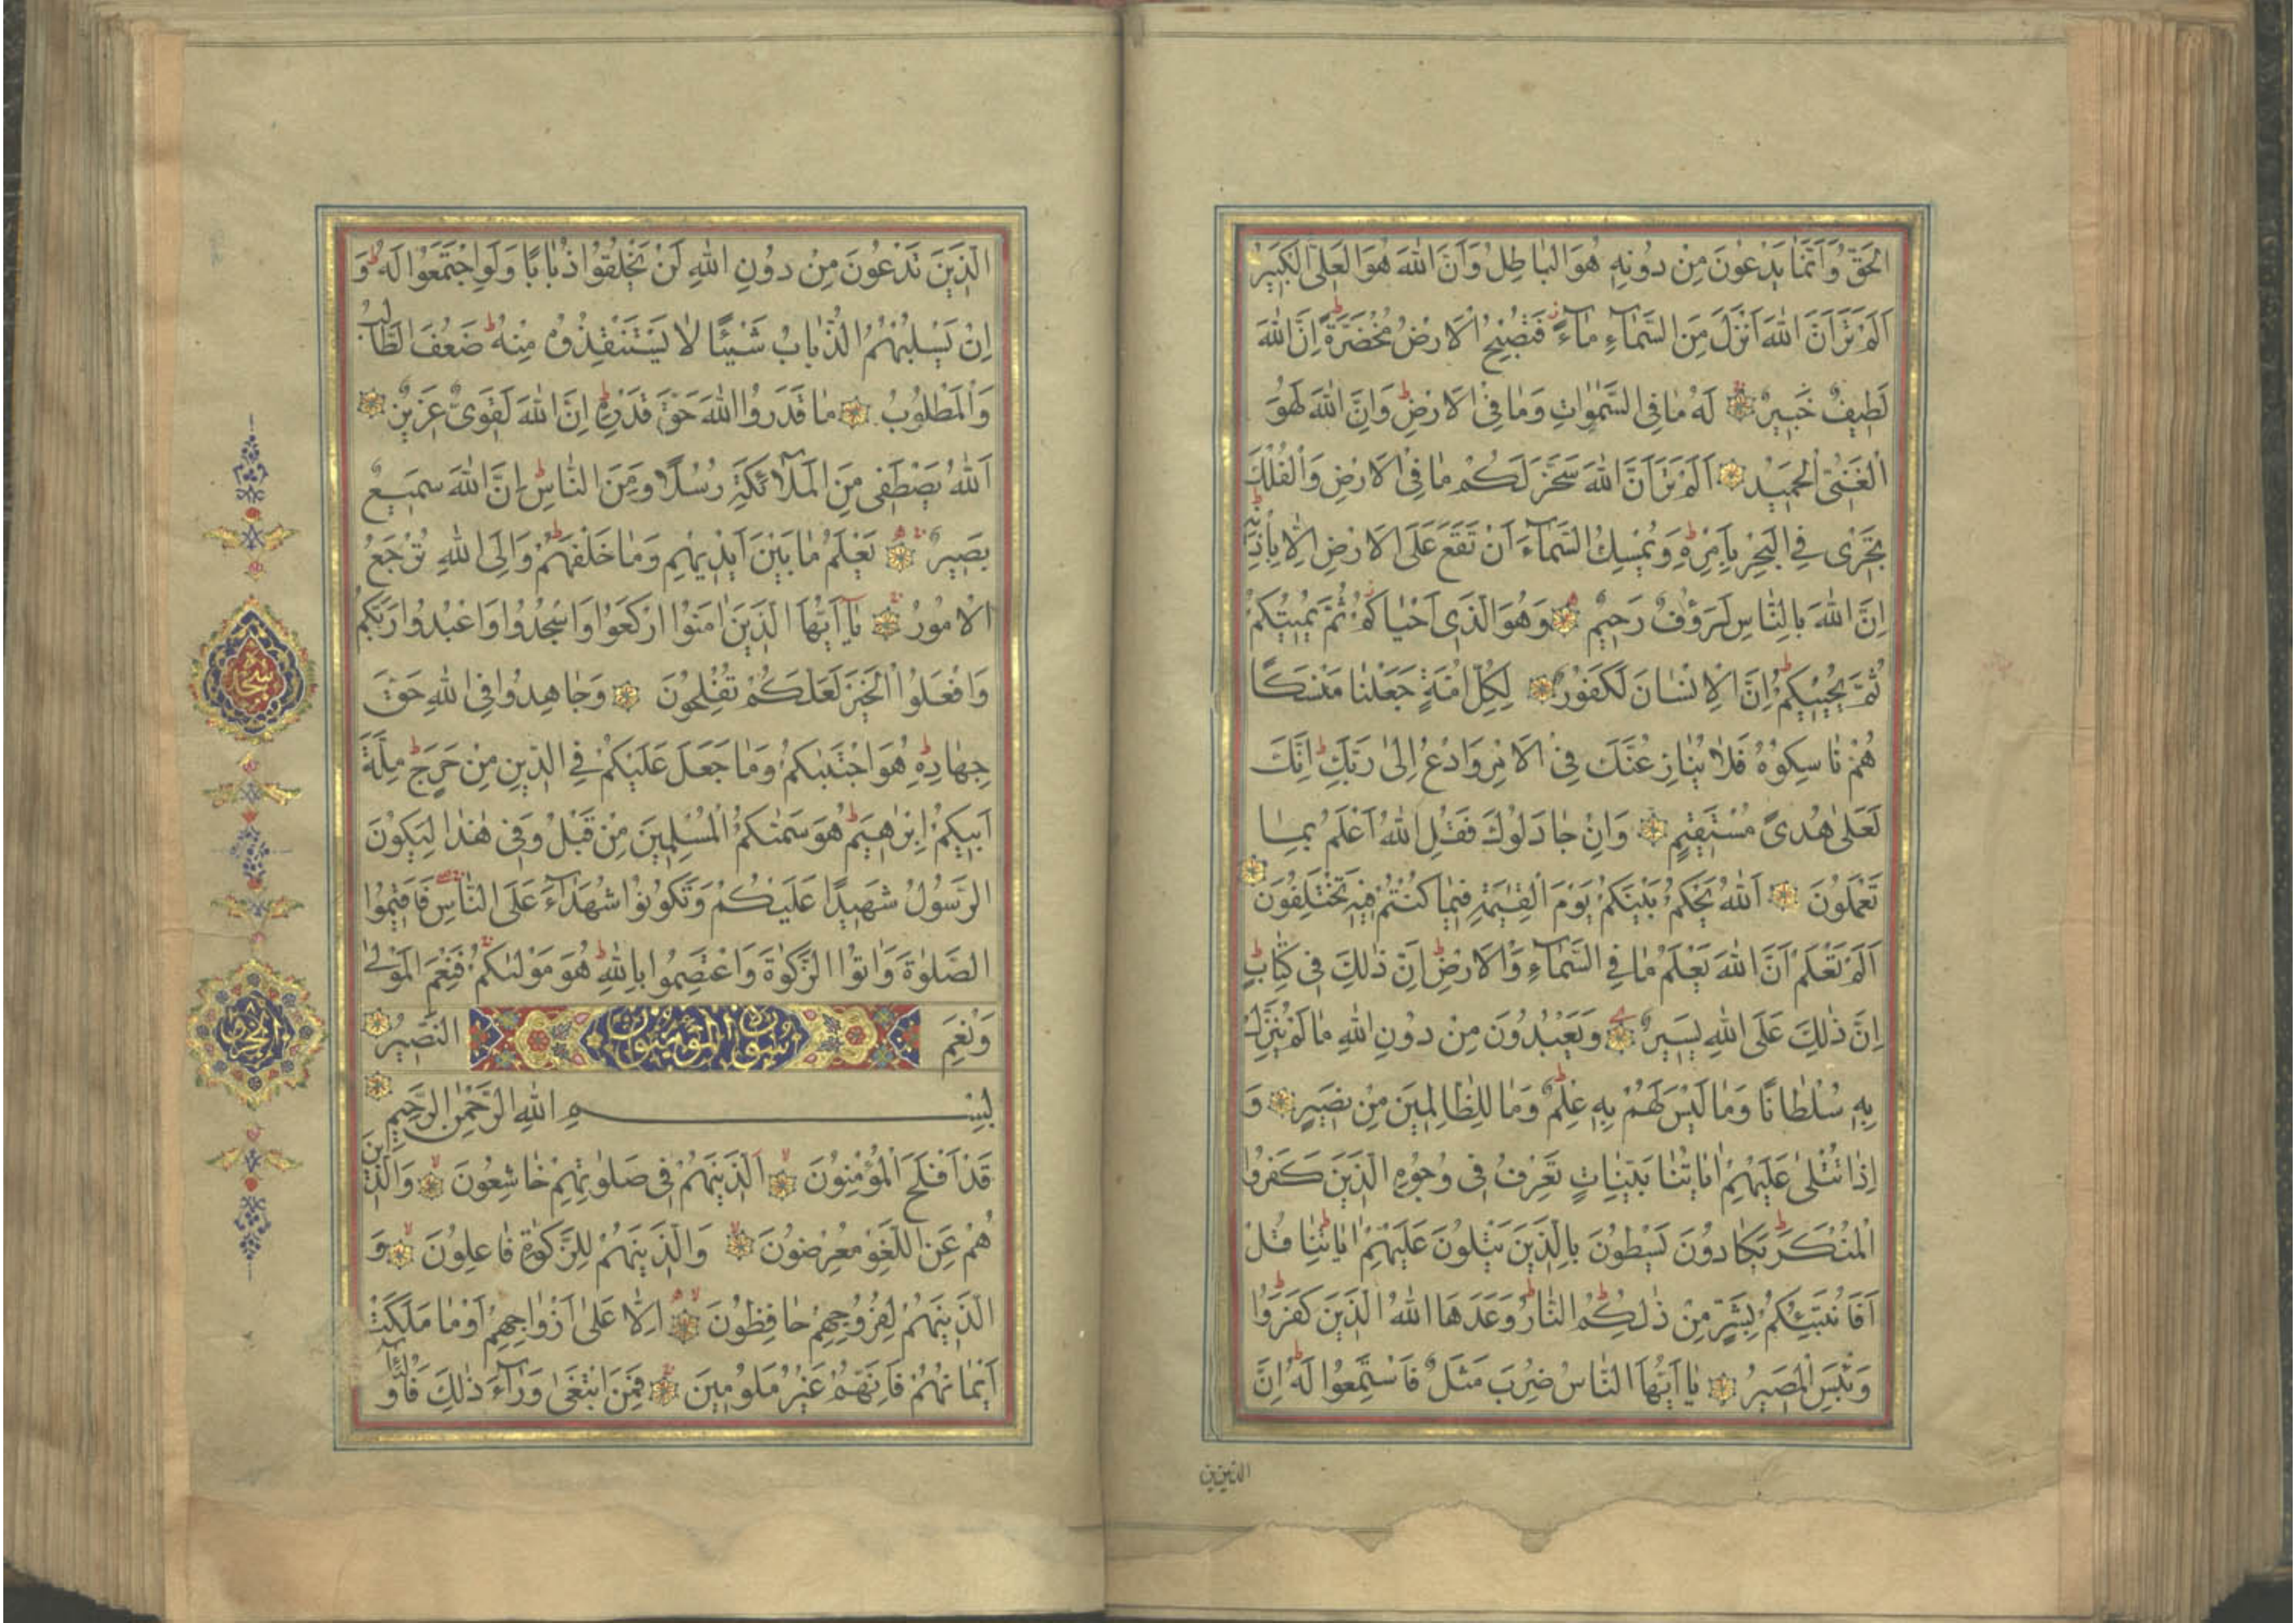 الْحَقُّ وَاَنَّ مَا يَدْعُونَ مِنْ دُونِهِ هُوَ الْبَاطِلُ وَاَنَّ اللهَ هُوَ الْعَلِيُّ الْكَبِيرُ
اَلَمْ تَرَ اَنَّ اللهَ اَنْزَلَ مِنَ السَّمَاءِ مَاءً فَتُصْبِحُ الْاَرْضُ مُخْضَرَّةً اِنَّ اللهَ
لَطِيفٌ خَبِيرٌ لَهُ مَا فِي السَّمٰوَاتِ وَمَا فِي الْاَرْضِ وَاِنَّ اللهَ لَهُوَ
الْغَنِيُّ الْحَمِيدُ اَلَمْ تَرَ اَنَّ اللهَ سَخَّرَ لَكُمْ مَا فِي الْاَرْضِ وَالْفُلْكَ
تَجْرِي فِي الْبَحْرِ بِاَمْرِهِ وَيُمْسِكُ السَّمَاءَ اَنْ تَقَعَ عَلَى الْاَرْضِ اِلَّا بِاِذْنِهِ
اِنَّ اللهَ بِالنَّاسِ لَرَؤُفٌ رَحِيمٌ وَهُوَ الَّذِي اَحْيَاكُمْ ثُمَّ يُمِيتُكُمْ
ثُمَّ يُحْيِيكُمْ اِنَّ الْاِنْسَانَ لَكَفُورٌ لِكُلِّ اُمَّةٍ جَعَلْنَا مَنْسَكًا
هُمْ نَاسِكُوهُ فَلَا يُنَازِعُنَّكَ فِي الْاَمْرِ وَادْعُ اِلٰى رَبِّكَ اِنَّكَ
لَعَلٰى هُدًى مُسْتَقِيمٍ وَاِنْ جَادَلُوكَ فَقُلِ اللهُ اَعْلَمُ بِمَا
تَعْمَلُونَ اَللهُ يَحْكُمُ بَيْنَكُمْ يَوْمَ الْقِيٰمَةِ فِيمَا كُنْتُمْ فِيهِ تَخْتَلِفُونَ
اَلَمْ تَعْلَمْ اَنَّ اللهَ يَعْلَمُ مَا فِي السَّمَاءِ وَالْاَرْضِ اِنَّ ذٰلِكَ فِي كِتَابٍ
اِنَّ ذٰلِكَ عَلَى اللهِ يَسِيرٌ وَيَعْبُدُونَ مِنْ دُونِ اللهِ مَا لَمْ يُنَزِّلْ
بِهِ سُلْطَانًا وَمَا لَيْسَ لَهُمْ بِهِ عِلْمٌ وَمَا لِلظَّالِمِينَ مِنْ نَصِيرٍ وَ
اِذَا تُتْلٰى عَلَيْهِمْ اٰيَاتُنَا بَيِّنَاتٍ تَعْرِفُ فِي وُجُوهِ الَّذِينَ كَفَرُوا
الْمُنْكَرَ يَكَادُونَ يَسْطُونَ بِالَّذِينَ يَتْلُونَ عَلَيْهِمْ اٰيَاتِنَا قُلْ
اَفَاُنَبِّئُكُمْ بِشَرٍّ مِنْ ذٰلِكُمْ النَّارُ وَعَدَهَا اللهُ الَّذِينَ كَفَرُوا
وَبِئْسَ الْمَصِيرُ يَا اَيُّهَا النَّاسُ ضُرِبَ مَثَلٌ فَاسْتَمِعُوا لَهُ اِنَّ
الَّذِينَ
الَّذِينَ تَدْعُونَ مِنْ دُونِ اللهِ لَنْ يَخْلُقُوا ذُبَابًا وَلَوِ اجْتَمَعُوا لَهُ وَ
اِنْ يَسْلُبْهُمُ الذُّبَابُ شَيْئًا لَا يَسْتَنْقِذُوهُ مِنْهُ ضَعُفَ الطَّالِبُ
وَالْمَطْلُوبُ مَا قَدَرُوا اللهَ حَقَّ قَدْرِهِ اِنَّ اللهَ لَقَوِيٌّ عَزِيزٌ
اَللهُ يَصْطَفِي مِنَ الْمَلٰائِكَةِ رُسُلًا وَمِنَ النَّاسِ اِنَّ اللهَ سَمِيعٌ
بَصِيرٌ يَعْلَمُ مَا بَيْنَ اَيْدِيهِمْ وَمَا خَلْفَهُمْ وَاِلَى اللهِ تُرْجَعُ
الْاُمُورُ يَا اَيُّهَا الَّذِينَ اٰمَنُوا ارْكَعُوا وَاسْجُدُوا وَاعْبُدُوا رَبَّكُمْ
وَافْعَلُوا الْخَيْرَ لَعَلَّكُمْ تُفْلِحُونَ وَجَاهِدُوا فِي اللهِ حَقَّ
جِهَادِهِ هُوَ اجْتَبٰيكُمْ وَمَا جَعَلَ عَلَيْكُمْ فِي الدِّينِ مِنْ حَرَجٍ مِلَّةَ
اَبِيكُمْ اِبْرٰهِيمَ هُوَ سَمّٰيكُمُ الْمُسْلِمِينَ مِنْ قَبْلُ وَفِي هٰذَا لِيَكُونَ
الرَّسُولُ شَهِيدًا عَلَيْكُمْ وَتَكُونُوا شُهَدَاءَ عَلَى النَّاسِ فَاَقِيمُوا
الصَّلٰوةَ وَاٰتُوا الزَّكٰوةَ وَاعْتَصِمُوا بِاللهِ هُوَ مَوْلٰيكُمْ فَنِعْمَ الْمَوْلٰى
وَنِعْمَ النَّصِيرُ
سورة المؤمنون
بِسْمِ اللهِ الرَّحْمٰنِ الرَّحِيمِ
قَدْ اَفْلَحَ الْمُؤْمِنُونَ اَلَّذِينَ هُمْ فِي صَلٰوتِهِمْ خَاشِعُونَ وَالَّذِينَ
هُمْ عَنِ اللَّغْوِ مُعْرِضُونَ وَالَّذِينَ هُمْ لِلزَّكٰوةِ فَاعِلُونَ وَ
الَّذِينَ هُمْ لِفُرُوجِهِمْ حَافِظُونَ اِلَّا عَلٰى اَزْوَاجِهِمْ اَوْ مَا مَلَكَتْ
اَيْمَانُهُمْ فَاِنَّهُمْ غَيْرُ مَلُومِينَ فَمَنِ ابْتَغٰى وَرَاءَ ذٰلِكَ فَاُولٰئِكَ